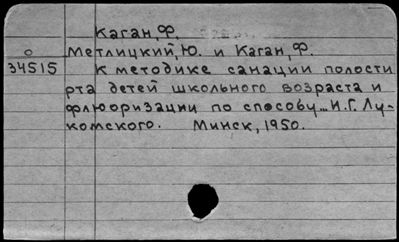 Каган, Ф.
о Метлицкий, Ю. и Каган, Ф.
34515 К методике санации полости
рта детей школьного возраста и
флюоризации по способу... И.Г. Лу-
комского. Минск, 1950.